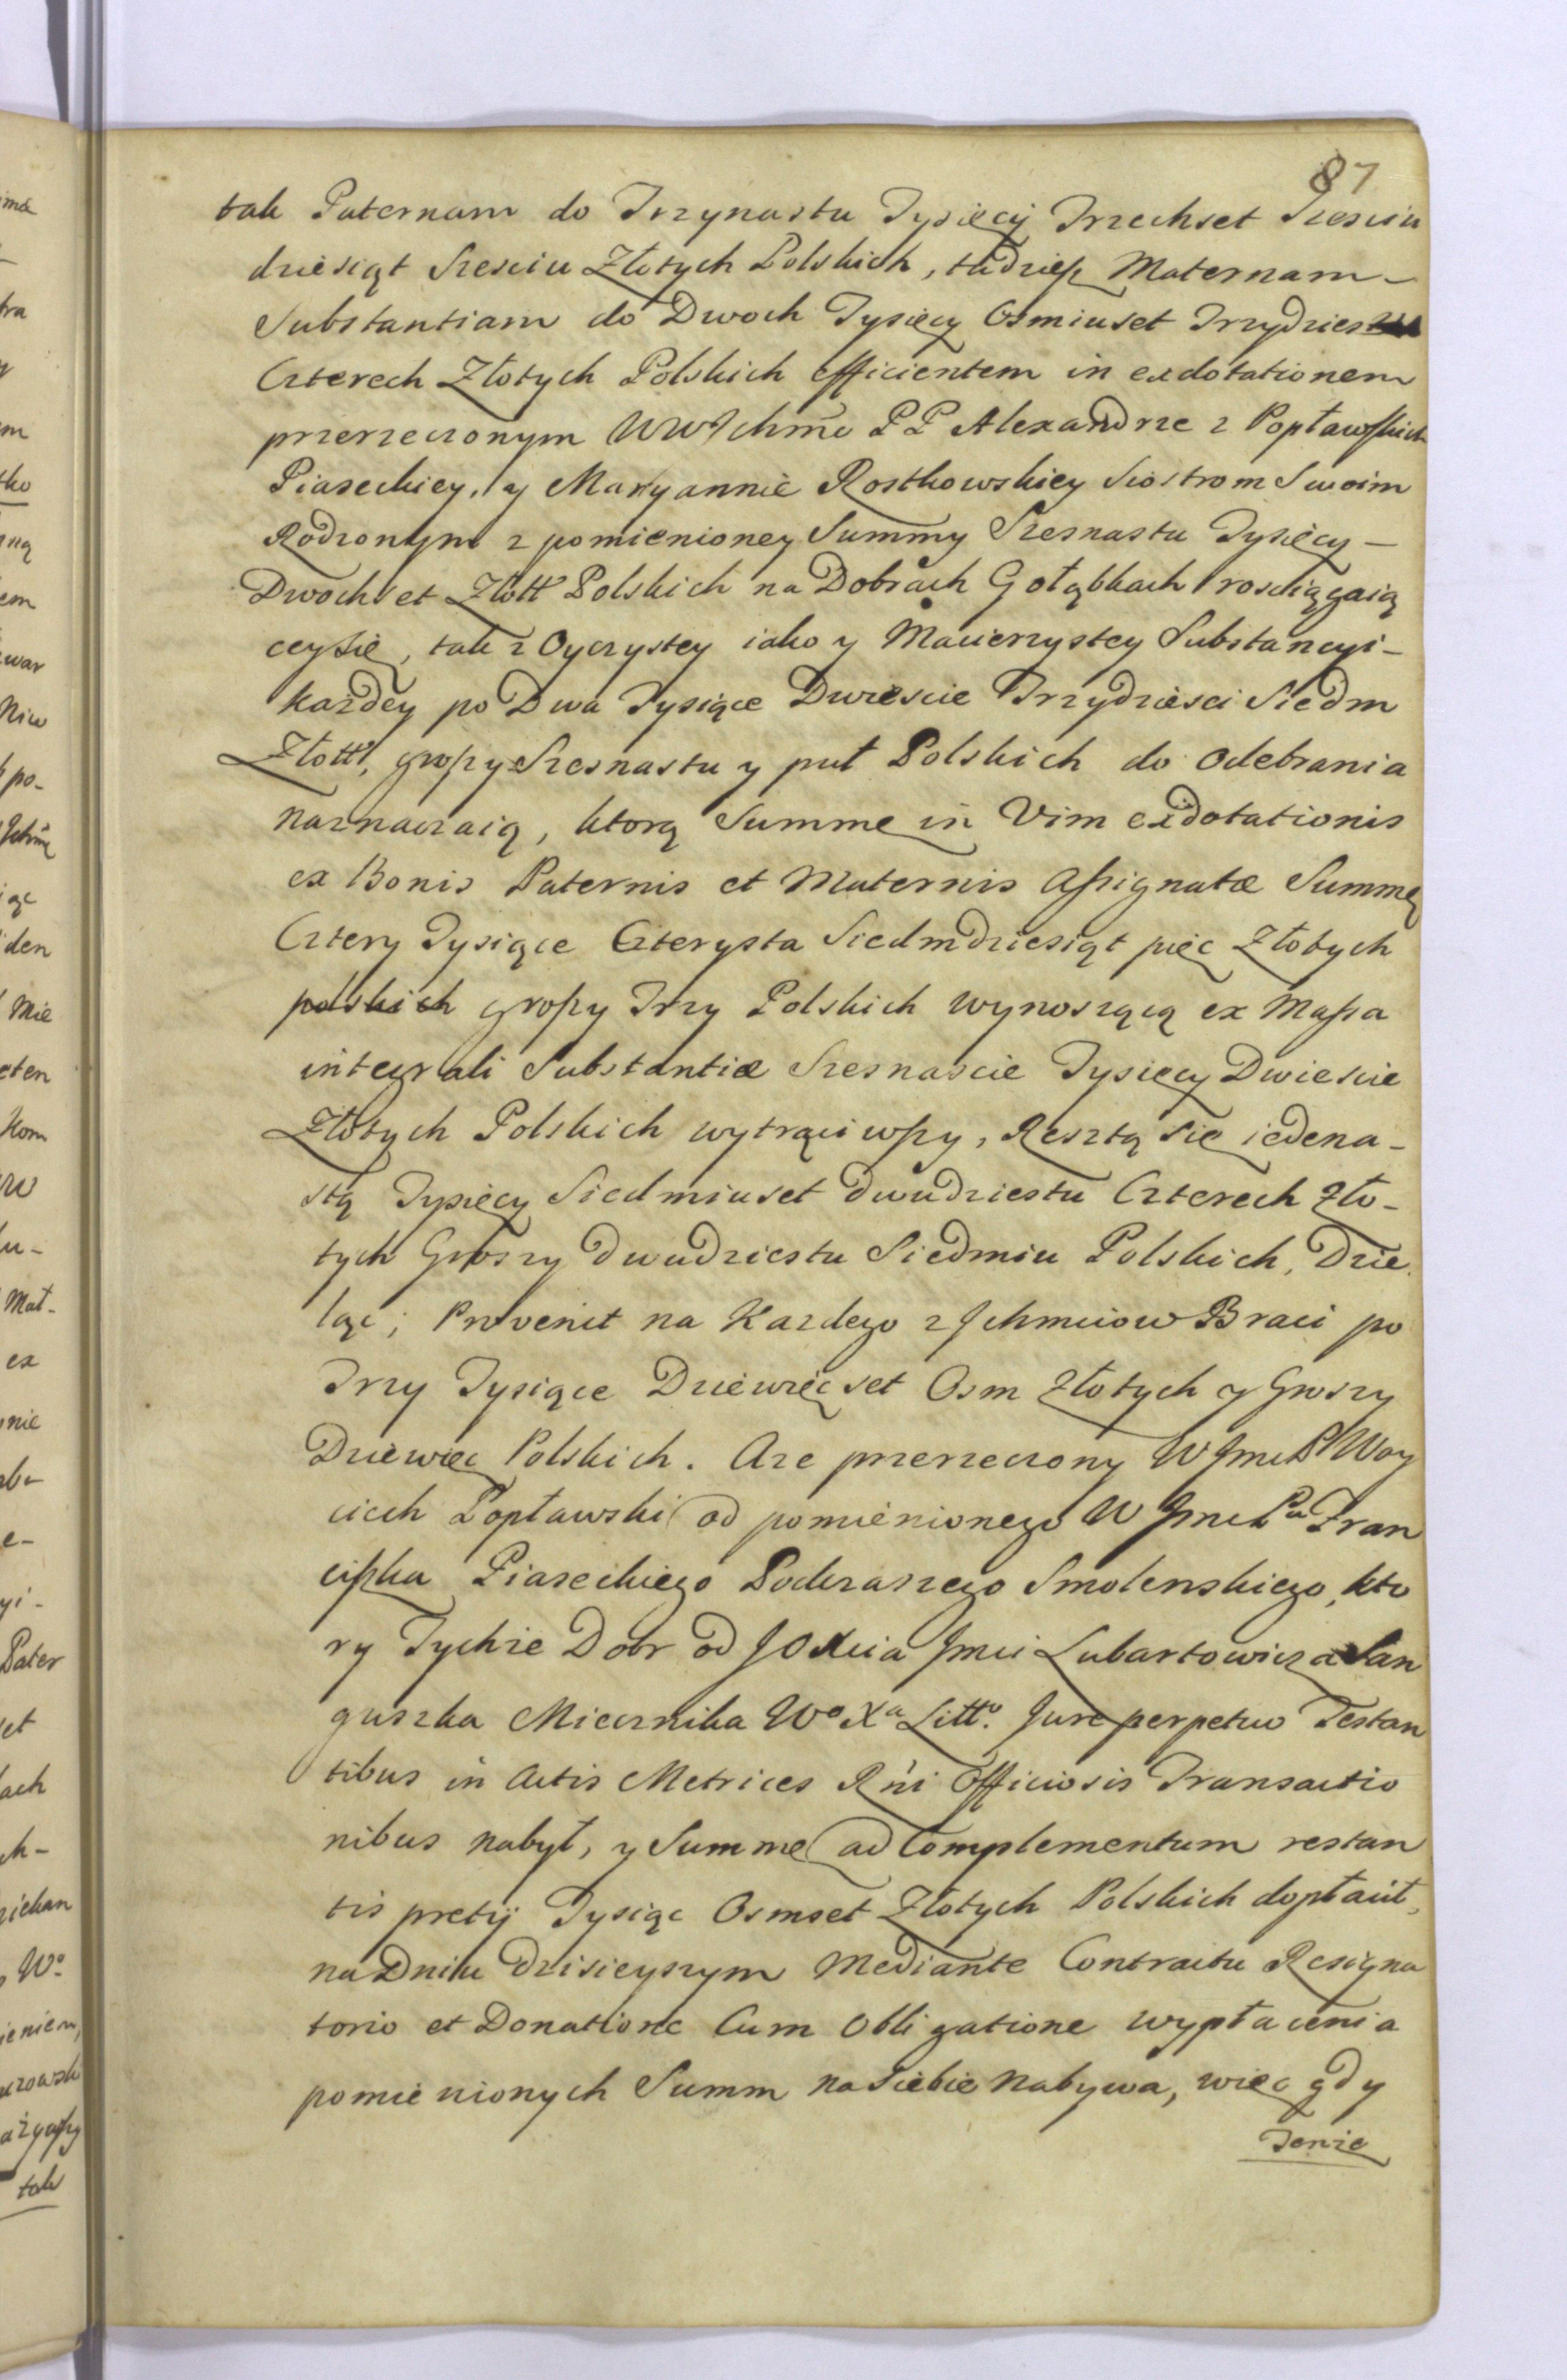 87
tak Paternam do Trzynastu Tysięcy Trzechset Szesciu
dziesiąt Szesciu Złotych Polskich, tudziesz Maternam –
Substantiam do Dwoch Tysięcy Osmiuset Trzydziestu
Czterech Złotych Polskich efficientem in exdotationem
przerzeczonym WWJchmċ PP Alexandrze z Popławskich
Piaseckiey, y Maryannie Rostkowskiey Siostrom Swoim
Rodzonym z pomienioney Summy Szesnastu Tysięcy –
Dwochset Złott Polskich na Dobrach Gołąbkach rosciągaią
ceysię, tak z Oyczystey iako y Macierzystey Substancyi –
każdey po Dwa Tysiące Dwiescie Trzydziesci Siedm
Złott, groszy Szesnastu y puł Polskich do odebrania
naznaczaią, ktorą Summę in Vim exdotationis
ex Bonis Paternis et Maternis Assignatæ Summę
Cztery Tysiące Czterysta Siedmdziesiąt pięc Złotych
polskich groszy Trzy Polskich wynoszącą ex Massa
integrali Substantiæ Szesnascie Tysięcy Dwiescie
Złotych Polskich wytrąciwszy, Resztą się iedena –
stą Tysięcy Siedmiuset dwudziestu Czterech Zło –
tych Groszy dwudziestu Siedmiu Polskich, Dzie
ląc; Provenit na Kazdego z Jchmciow Braci po
Trzy Tysiące Dziewięcset Osm Złotych y Groszy
Dziewięc Polskich. Aże przerzeczony WJmcP Woy
ciech Popławski od pomienionego W JmcPa Fran
ciszka Piaseckiego Podczaszego Smolenskiego, kto
ry Tychze Dobr od JOXcia Jmci Lubartowicza San
guszka Miecznika Wo Xa Litto. Jure perpetuo Testan
tibus in Actis Metrices Rni Officiosis Transactio
nibus nabył, y Summę ad Complementum restan
tis pretij Tysiąc Osmset Złotych Polskich dopłacił,
na Dniu dzisieyszym Mediante Contractu Resigna
torio et Donatione Cum Obligatione wypłacenia
pomienionych Summ na siebie nabywa, więc gdy
Tenże